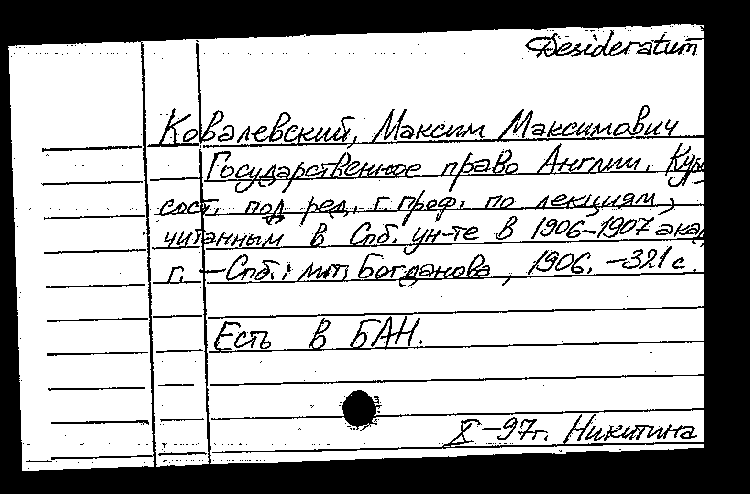 Desideratum
Ковалевский, Максим Максимович
Государственное право Англии. Курс
сост. под ред. г. проф. по лекциям,
читанным в Спб. ун-те в 1906-1907 акад.
г. - Спб.: лит. Богданова, 1906. - 321 с.
Есть в БАН.
X - 97г. Никитина